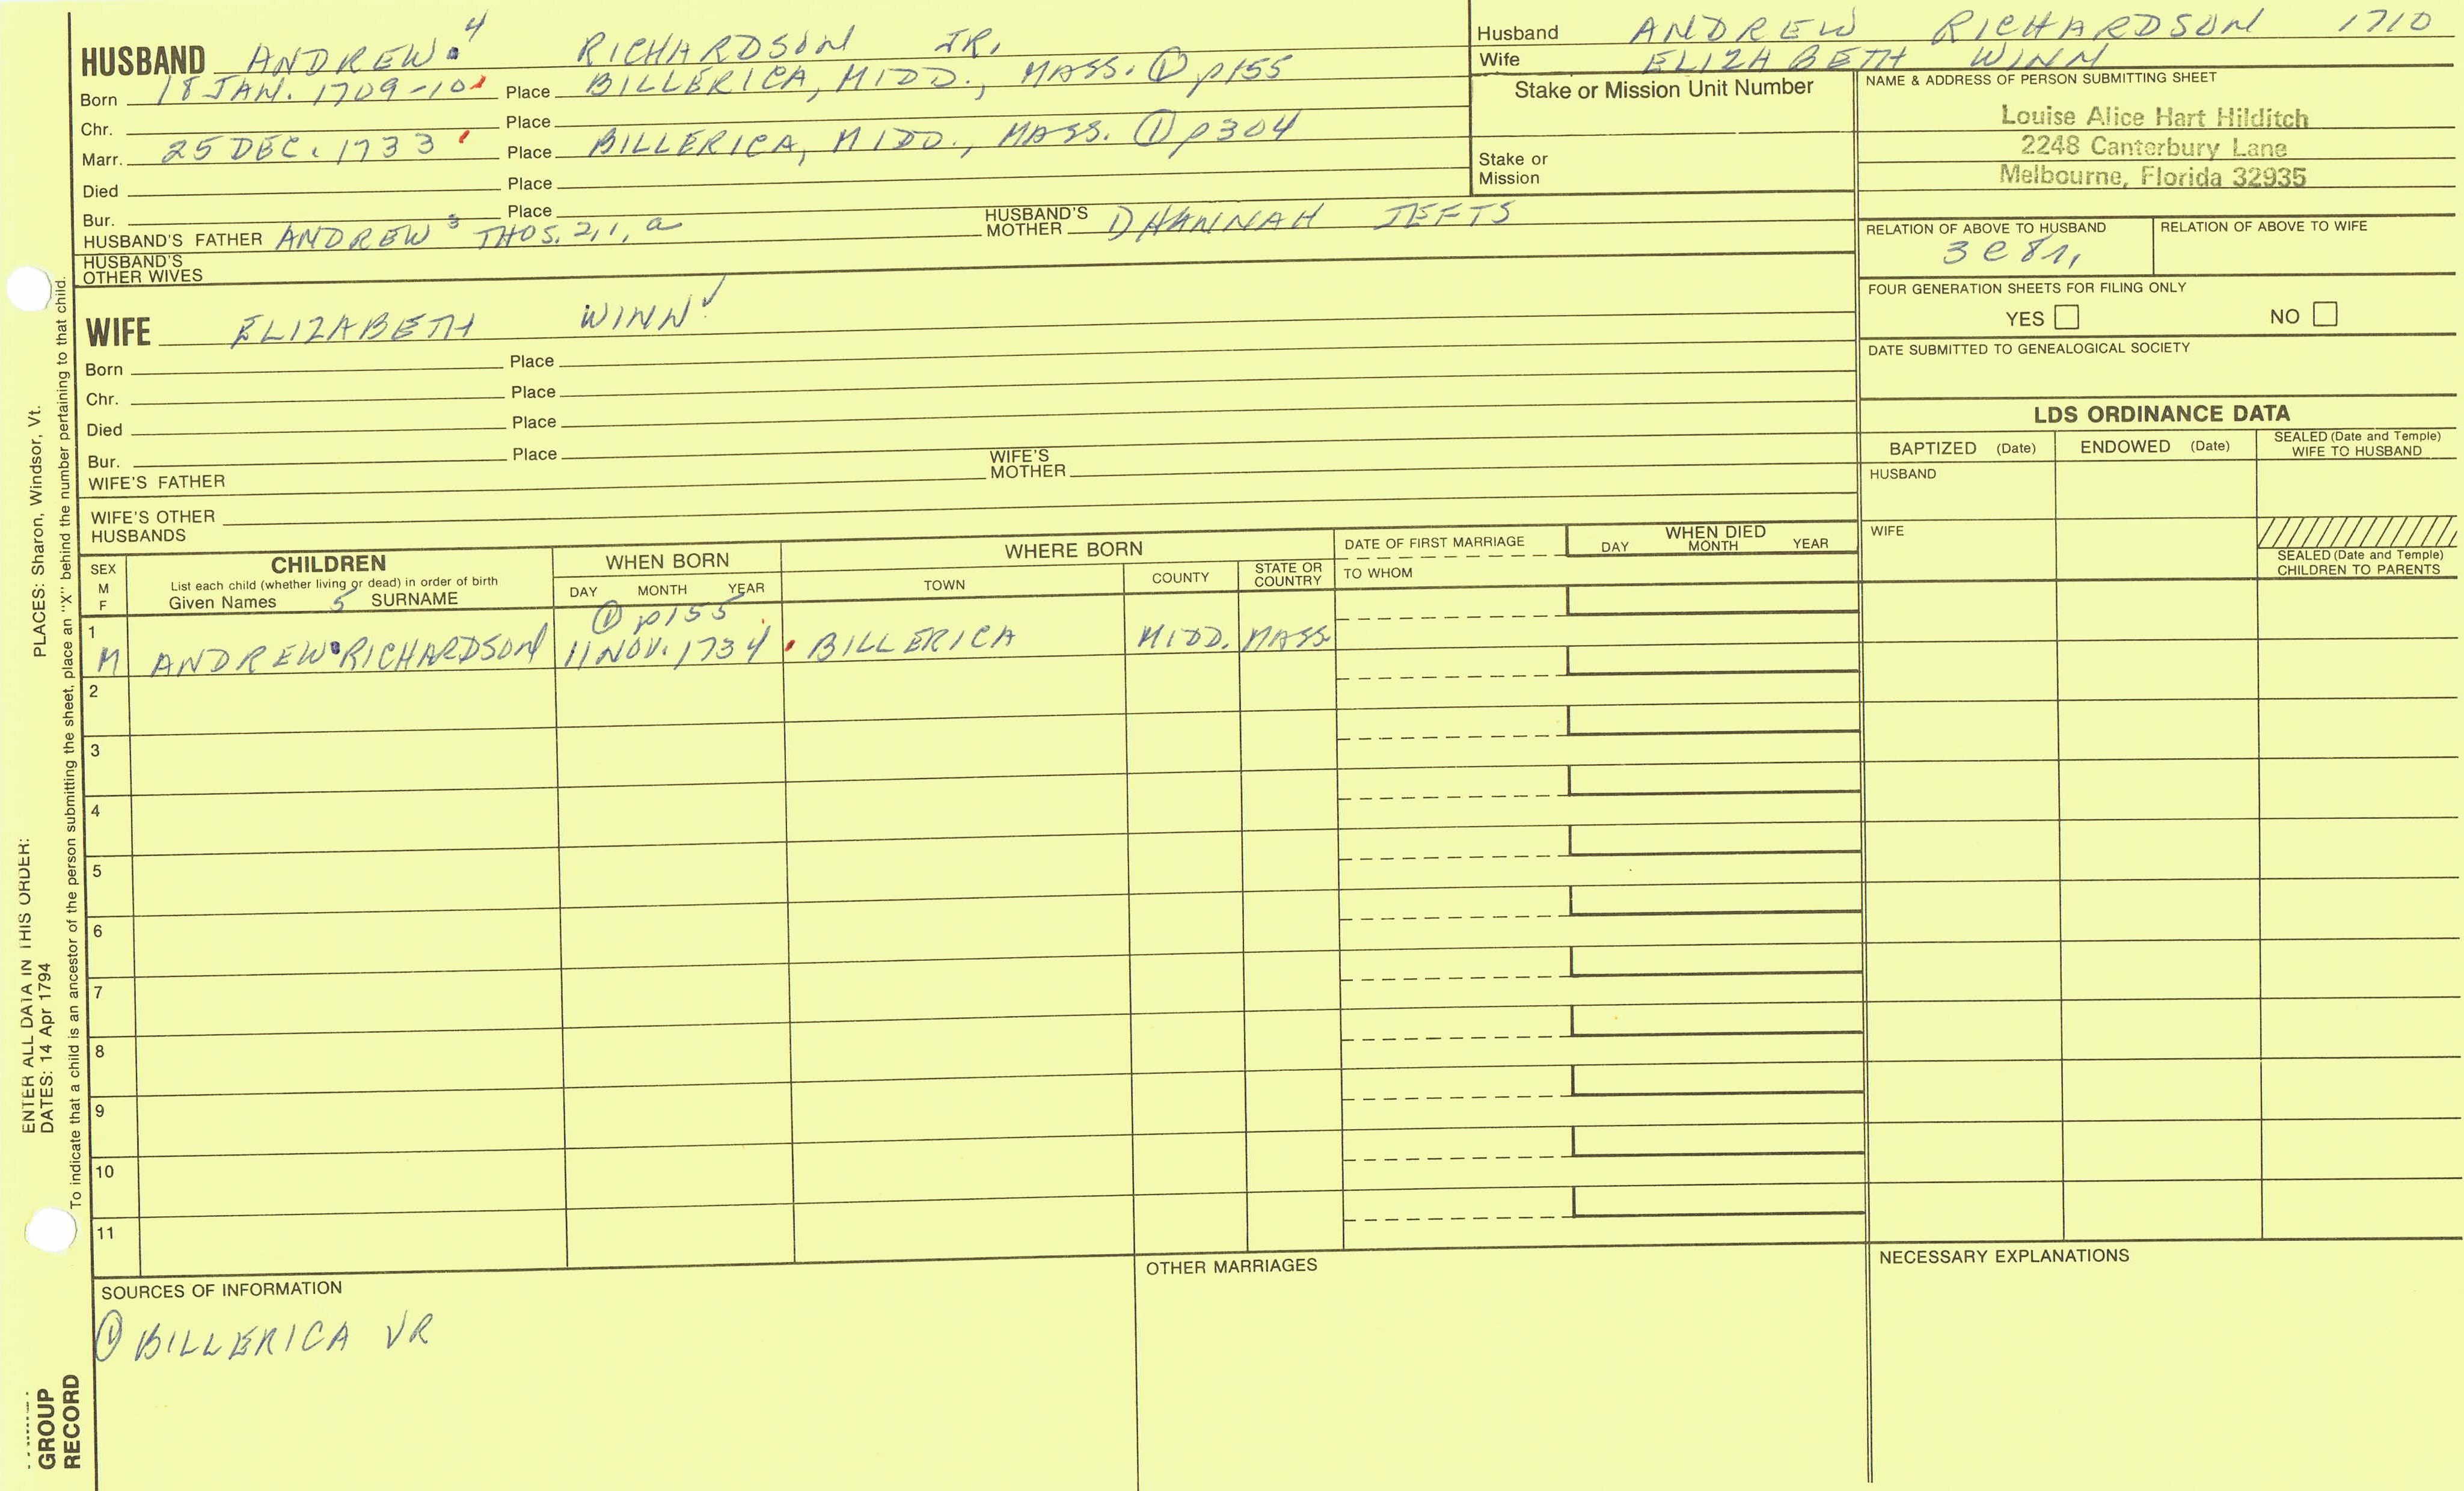 HUSBAND ANDREW 4 RICHARDSON JR.
Born 18 JAN. 1709-10 Place BILLERICA, MIDD., MASS. ① p155
Chr. Place
Marr. 25 DEC. 1733 Place BILLERICA, MIDD., MASS. ① p304
Died Place
Bur. Place
HUSBAND'S FATHER ANDREW 3 THOS. 2,1, a HUSBAND'S MOTHER HANNAH JEFTS
HUSBAND'S OTHER WIVES
WIFE ELIZABETH WINN
Born Place
Chr. Place
Died Place
Bur. Place
WIFE'S FATHER WIFE'S MOTHER
WIFE'S OTHER HUSBANDS
Husband ANDREW RICHARDSON 1710
Wife ELIZABETH WINN
Stake or Mission Unit Number
Stake or Mission
NAME & ADDRESS OF PERSON SUBMITTING SHEET
Louise Alice Hart Hilditch
2248 Canterbury Lane
Melbourne, Florida 32935
RELATION OF ABOVE TO HUSBAND RELATION OF ABOVE TO WIFE
FOUR GENERATION SHEETS FOR FILING ONLY
YES NO
DATE SUBMITTED TO GENEALOGICAL SOCIETY
LDS ORDINANCE DATA
BAPTIZED (Date) ENDOWED (Date) SEALED (Date and Temple) WIFE TO HUSBAND
HUSBAND
WIFE
SEALED (Date and Temple) CHILDREN TO PARENTS
SEX M F
CHILDREN
List each child (whether living or dead) in order of birth
Given Names 5 SURNAME
WHEN BORN
DAY MONTH YEAR
WHERE BORN
TOWN COUNTY STATE OR COUNTRY
DATE OF FIRST MARRIAGE
TO WHOM
WHEN DIED
DAY MONTH YEAR
① p155
1
M ANDREW RICHARDSON 11 NOV. 1734 BILLERICA MIDD. MASS
2
3
4
5
6
7
8
9
10
11
SOURCES OF INFORMATION
① BILLERICA VR
OTHER MARRIAGES
NECESSARY EXPLANATIONS
ENTER ALL DATA IN THIS ORDER:
DATES: 14 Apr 1794 PLACES: Sharon, Windsor, Vt.
To indicate that a child is an ancestor of the person submitting the sheet, place an "X" behind the number pertaining to that child.
GROUP
RECORD